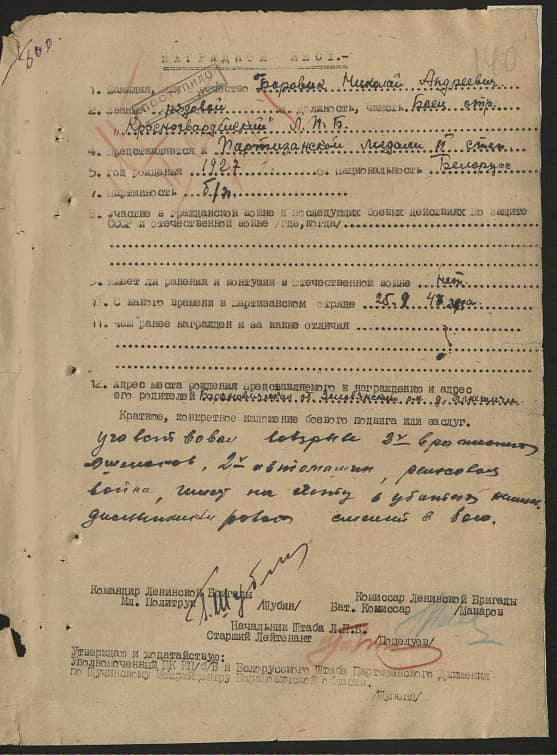 140
НАГРАДНОЙ ЛИСТ.-
ПОСТУПИЛО
1. Фамилия, имя отчество Боровик Николай Андреевич
2. Звание рядовой 3. Должность, часть Боец отр.
"Красногвардейский" Л.П.Б.
4. Представляется к Партизанской медали II степ
5. Год рождения 1927 6. Национальность Белорусс
7. Партийность б/п.
8. Участие в гражданской войне и последующих боевых действиях по защите
СССР и отечественной войне /где, когда/
9. Имеет ли ранения и контузии в отечественной войне Нет
10. С какого времени в партизанском отряде 25.9 43 года
11. Чем ранее награжден и за какие отличия
12. Адрес места рождения представляемого к награждению и адрес
его родителей
Краткое, конкретное изложение боевого подвига или заслуг.
участвовал взрыве 2х вражеских
эшелонов, 2х автомашин, рельсовая
война, имеет на счету 2 убитых немцев.
дисциплинирован смелый в бою.
Командир Ленинской Бригады
Мл. Политрук /Шубин/
Комиссар Ленинской Бригады
Бат. Комиссар /Макаров
Начальник Штаба Л.П.Б.
Старший Лейтенант /Поделуев/
Утверждаю и ходатайствую:
Уполномоченный ЦК КП/б/Б и Белорусского Штаба Партизанского Движения
по Щучинскому Межрайцентру Барановичской области.